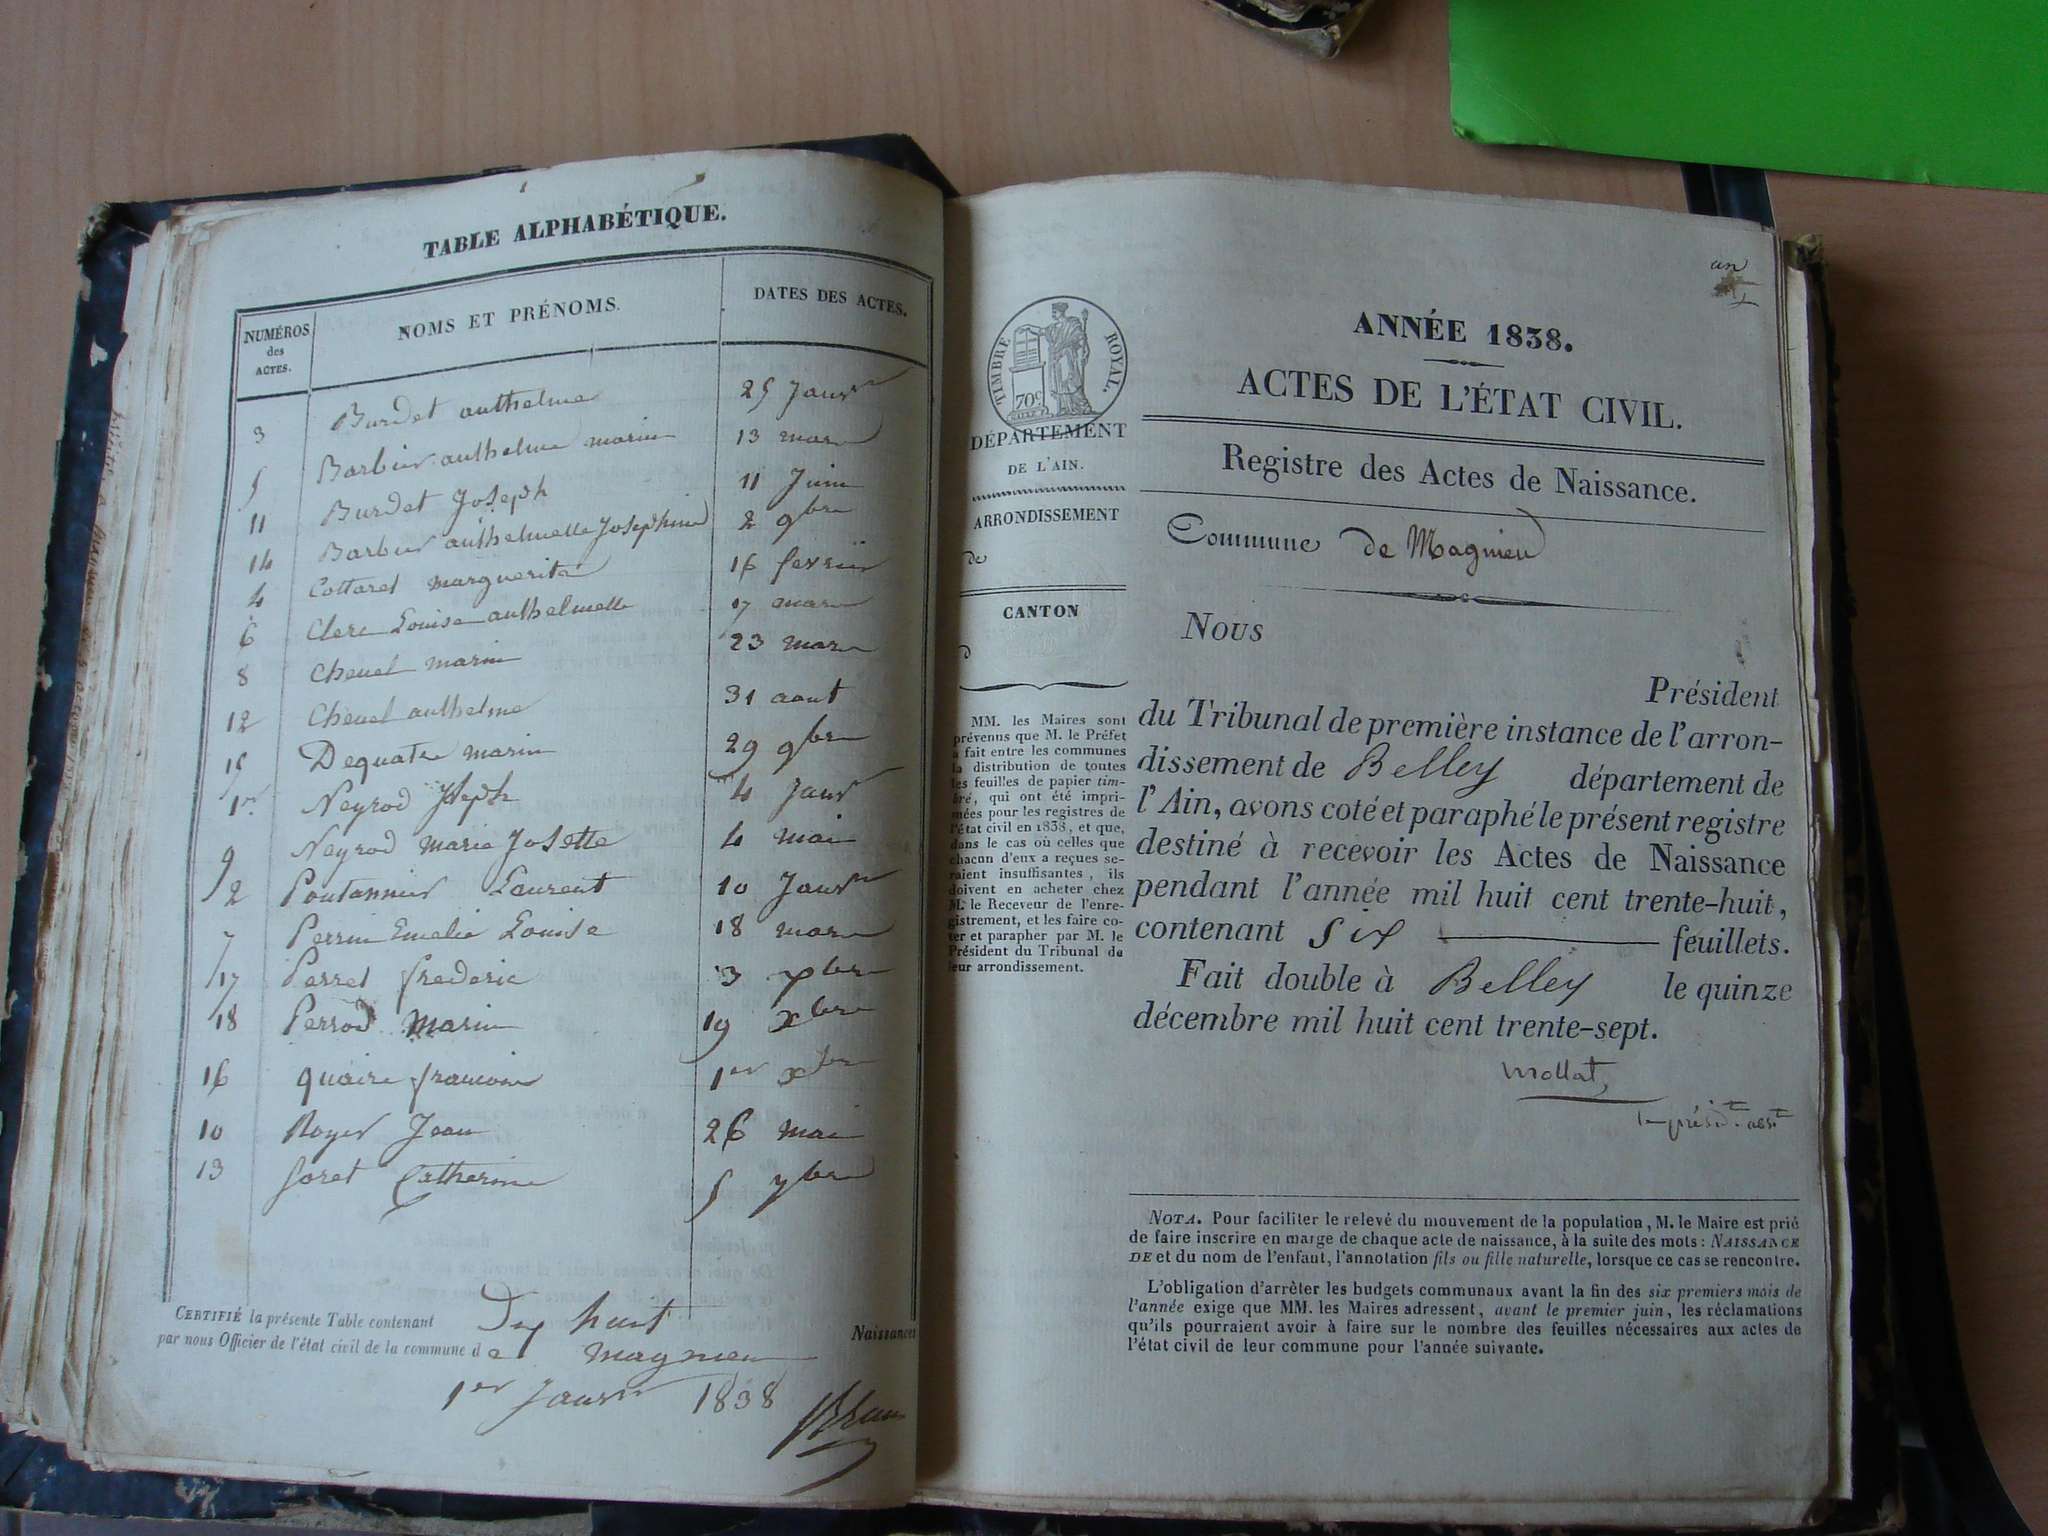 TABLE ALPHABÉTIQUE.
NUMÉROS
des
ACTES.
NOMS ET PRÉNOMS.
DATES DES ACTES.
3 Burdet anthelme 25 Janvr
5 Barbier anthelme marin 13 mars
11 Burdet Joseph 11 Juin
14 Barbier anthelmette Josephine 2 9bre
4 Cottaret marguerite 16 fevrier
6 Clerc Louise anthelmette 17 mars
8 Chevel marin 23 mars
12 Chevel anthelme 31 aout
15 Dequatre marin 29 9bre
1er Neyrod Joseph 4 Janvr
9 Neyrod marie Josette 4 mai
2 Pontannier Laurent 10 Janvr
7 Perrin Emelie Louise 18 mars
17 Perret frederic 3 xbre
18 Perrod Marin 19 xbre
16 quaire francoise 1er xbre
10 Royer Jean 26 mai
13 Soret Catherine 5 7bre
CERTIFIÉ la présente Table contenant Dix huit Naissances
par nous Officier de l'état civil de la commune de magnieu
1er Janvr 1838
un
TIMBRE ROYAL.
70c
DÉPARTEMENT
DE L'AIN.
ARRONDISSEMENT
de
CANTON
d
MM. les Maires sont
prévenus que M. le Préfet
a fait entre les communes
la distribution de toutes
les feuilles de papier tim-
bré, qui ont été impri-
mées pour les registres de
l'état civil en 1838, et que,
dans le cas où celles que
chacun d'eux a reçues se-
raient insuffisantes, ils
doivent en acheter chez
M. le Receveur de l'enre-
gistrement, et les faire co-
ter et parapher par M. le
Président du Tribunal de
leur arrondissement.
ANNÉE 1838.
ACTES DE L'ÉTAT CIVIL.
Registre des Actes de Naissance.
Commune de Magnieu
Nous
Président
du Tribunal de première instance de l'arron-
dissement de Belley département de
l'Ain, avons coté et paraphé le présent registre
destiné à recevoir les Actes de Naissance
pendant l'année mil huit cent trente-huit,
contenant six feuillets.
Fait double à Belley le quinze
décembre mil huit cent trente-sept.
Mollat,
NOTA. Pour faciliter le relevé du mouvement de la population, M. le Maire est prié
de faire inscrire en marge de chaque acte de naissance, à la suite des mots: NAISSANCE
DE et du nom de l'enfant, l'annotation fils ou fille naturelle, lorsque ce cas se rencontre.
L'obligation d'arrêter les budgets communaux avant la fin des six premiers mois de
l'année exige que MM. les Maires adressent, avant le premier juin, les réclamations
qu'ils pourraient avoir à faire sur le nombre des feuilles nécessaires aux actes de
l'état civil de leur commune pour l'année suivante.